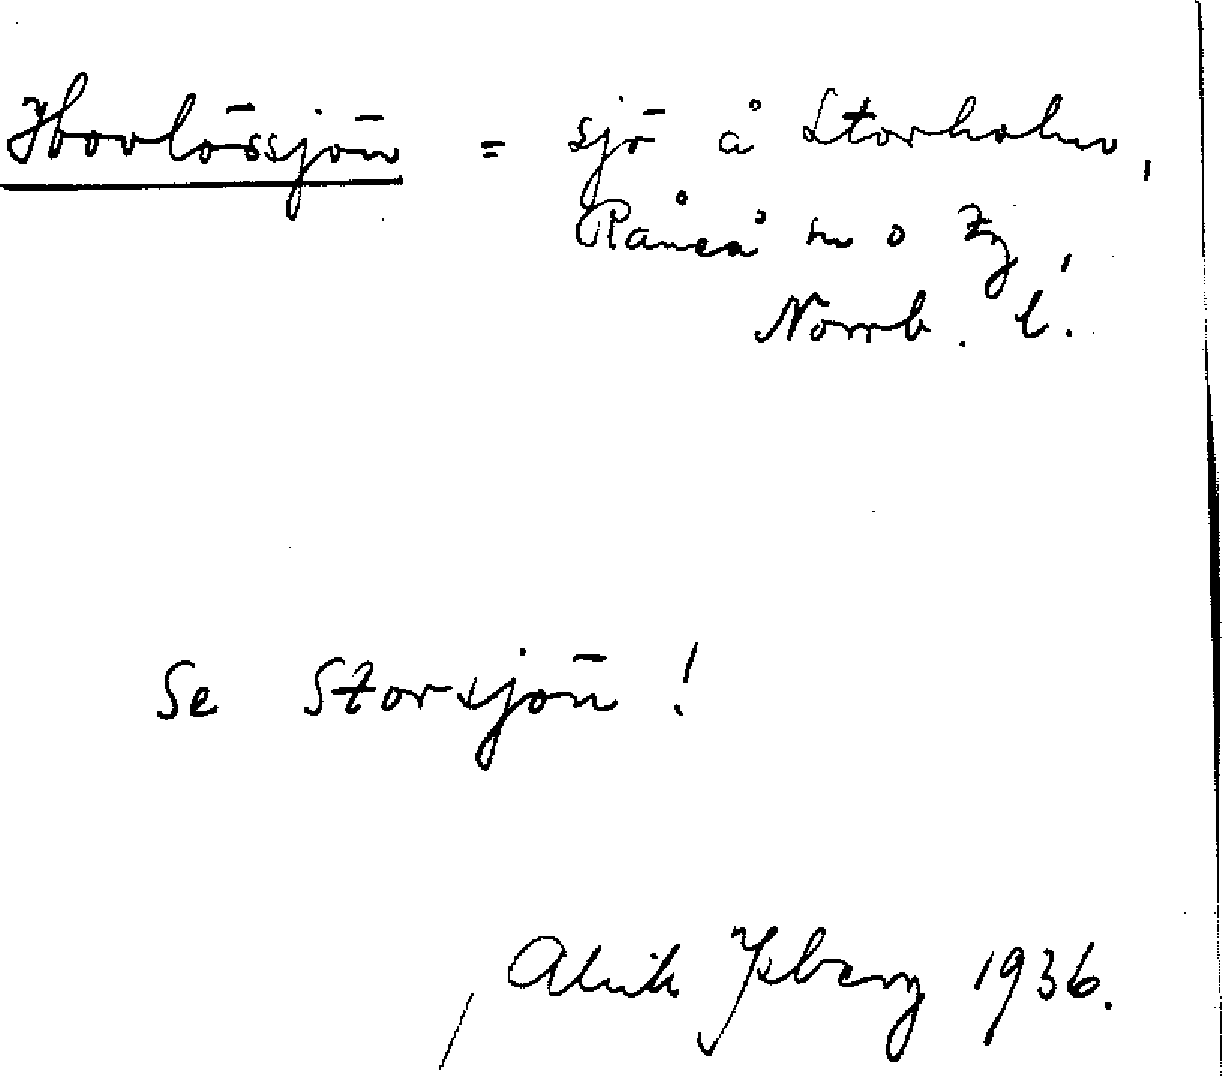 Hovlössjön = sjö å Storholm,
Råneå sn o tg,
Norrb. l.
Se Storsjön!
Alrik Ysberg 1936.